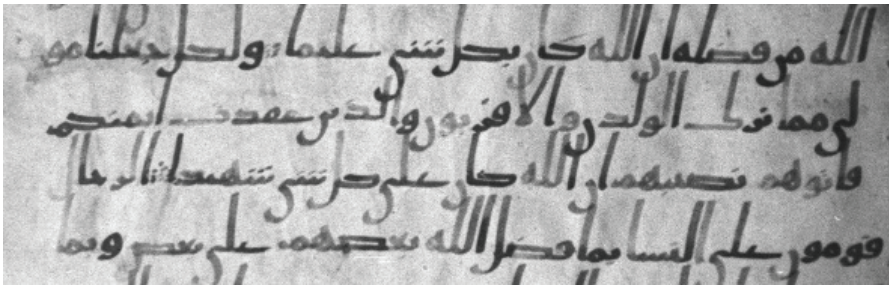 الله من فضله ان الله كان بكل شى عليما ولكل جعلنا مو
لى مما ترك الولدن والاقربون والذين عقدت ايمنكم
فاتوهم نصيبهم ان الله كان على كل شى شهيدا الرجال
قومون على النسا بما فضل الله بعضهم على بعض وبما